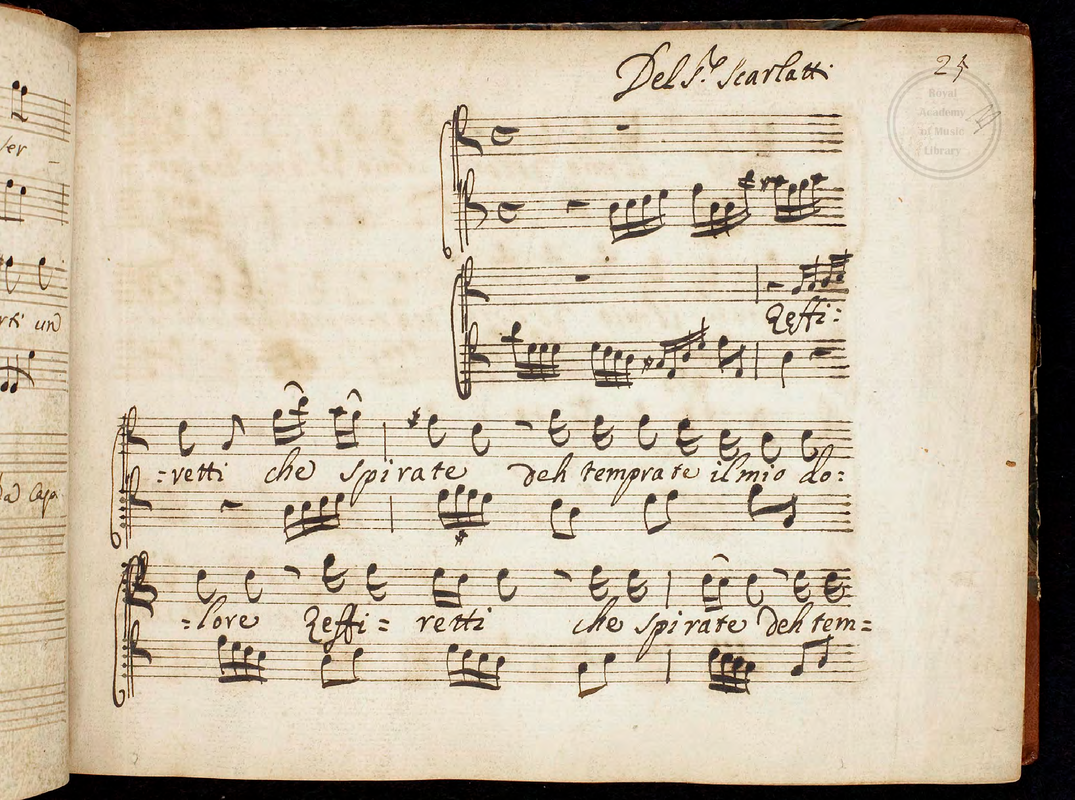 Del S.r Scarlatti
25
Royal
Academy
of Music
Library
Zeffi:
:retti che spirate deh temprate il mio do:
:lore Zeffi: retti che spirate deh tem=
ver -
rti un
Da Capo